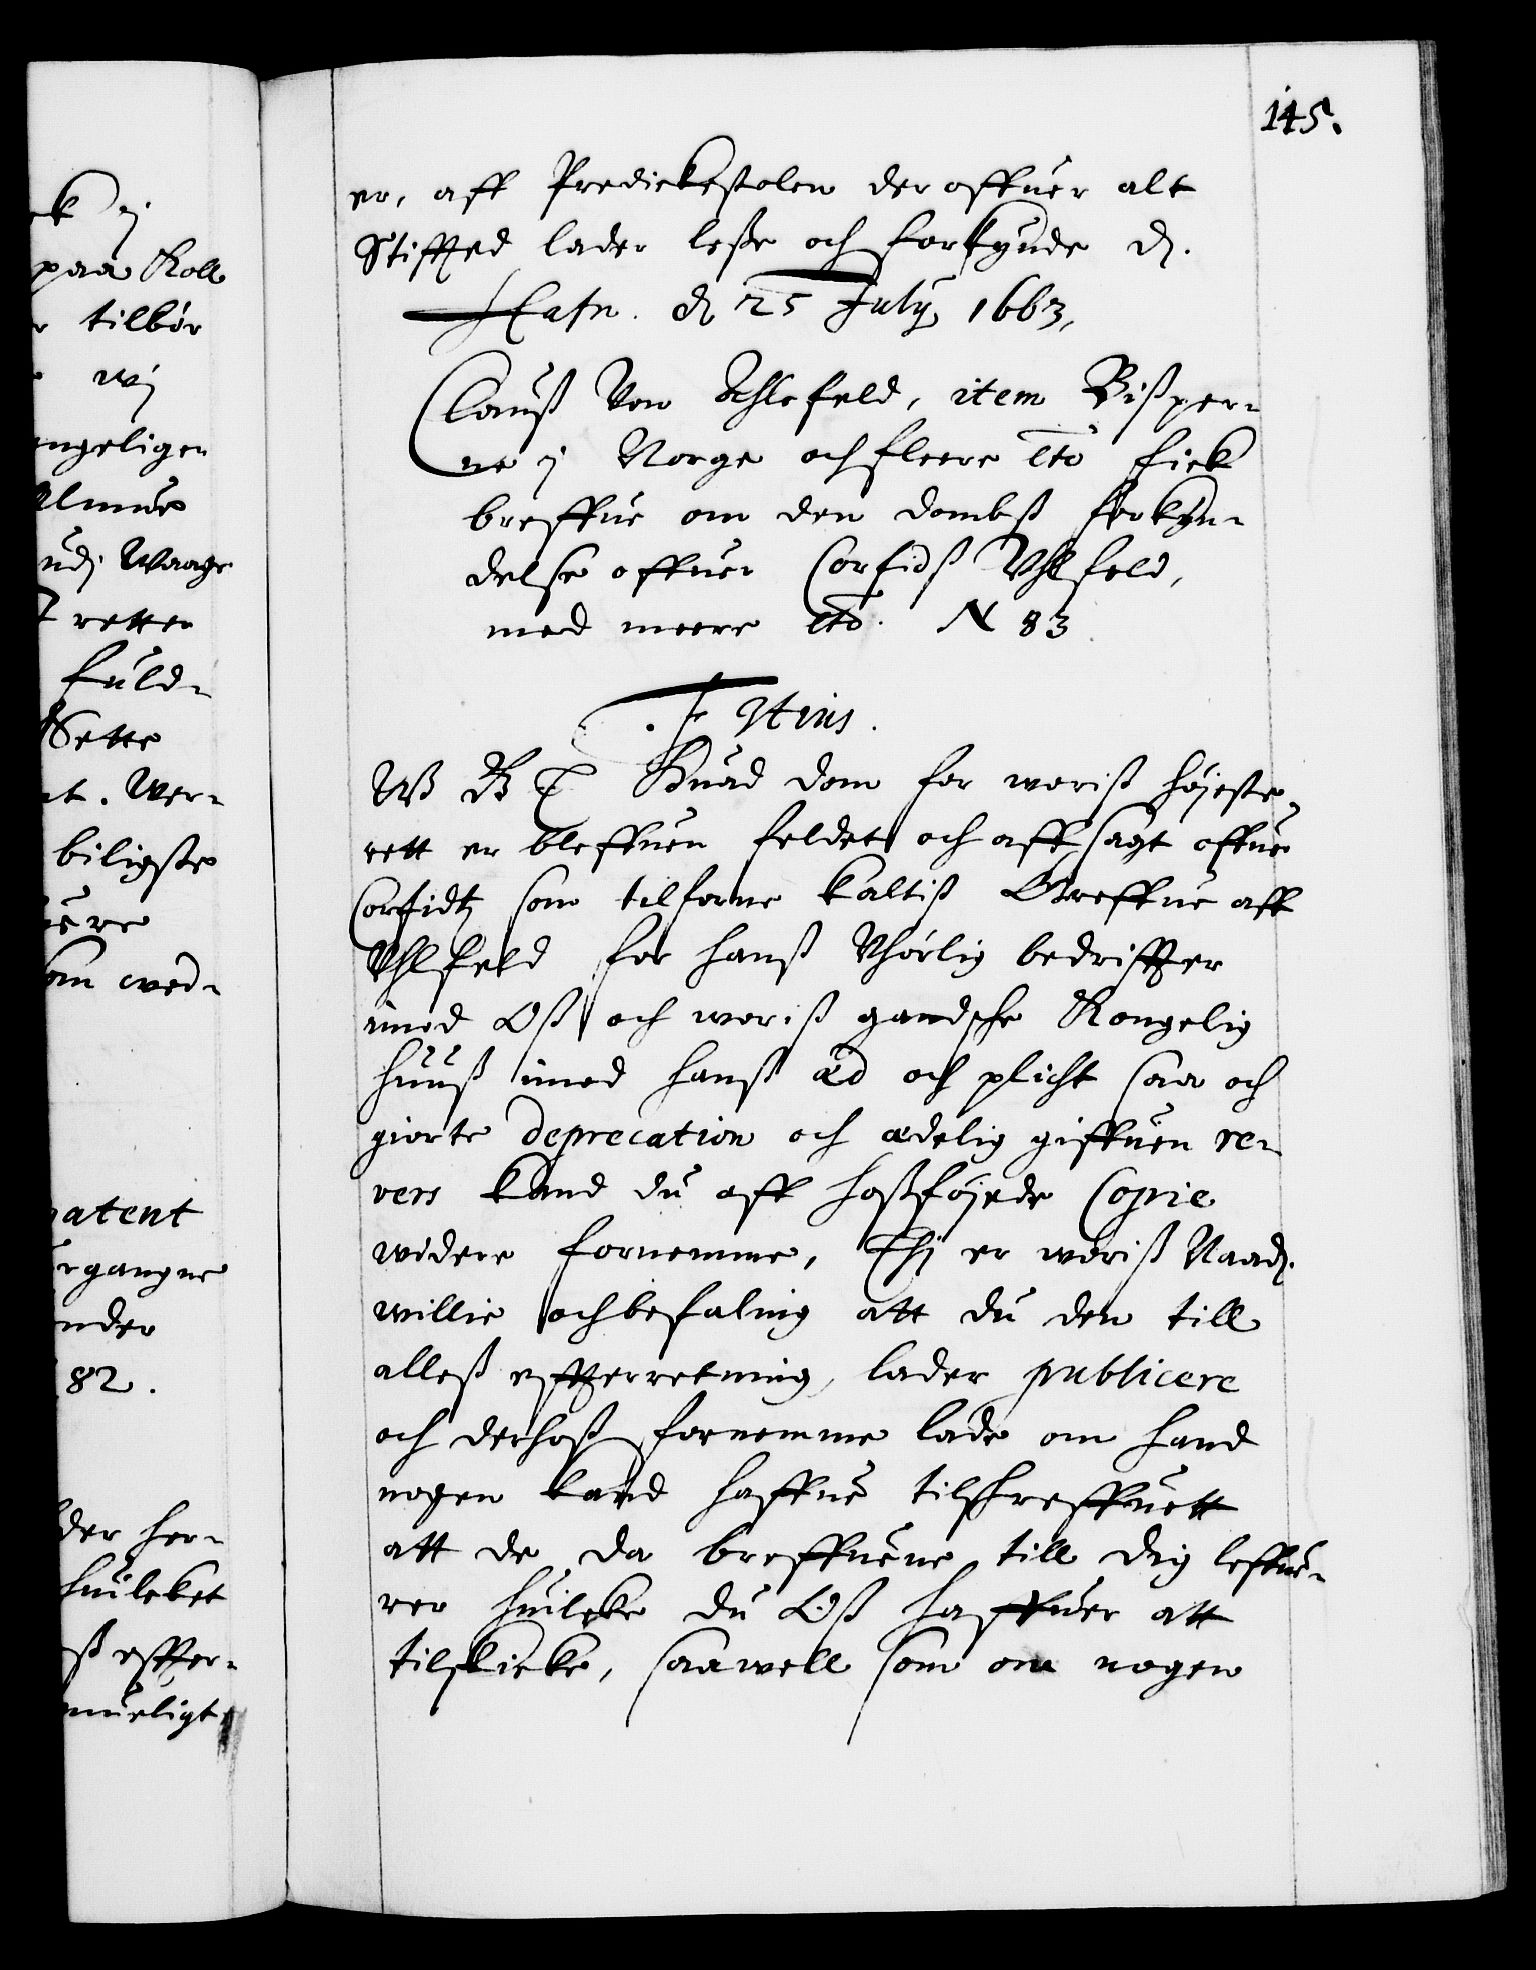 145.
er, aff Predickestolen der offuer alt
Stiffted lader leße och forkynde D.
Hafn. d 25 July 1663,
Clauß Von Ahlefeld, item Bisper-
ne j Norge och fleere etc fick
breffue om den dombß forkyn-
delse offuer Corfidß Vhlfeld,
med meere etc. N 83
F 3tius.
W B T Huad dom for woriß høieste-
rett er bleffuen feldet och aff sagt offuer
Corfidtz som tilforne kaltiß Greffue aff
Vhlfeld for hanß Vhørlig bedriffter
imod Oß och woriß gandsche Kongelig
huuß imod hanß æd och plicht saa och
giorte deprecation och ædelig giffuen re-
vers kand du aff hoßføjede Copie
widere fornemme, Thj er woriß Naad.
willie och befaling att du den till
alleß effterretning, lader publicere
och derhoß fornemme lade om hand
nogen kand haffue tilskreffuett
att de da breffuene till dig leffue-
rer huilcke du Oß haffuer att
tilskicke, saawell som om nogen
ck j
paa Roll
r tilbør
wj
engeligen
Almue
udj Waage
retter
fuld-
Sette
nt. Wer-
biligste
som wed-
patent
rgangne
nder
82.
der her-
huilcket
ß effter-
mueligt